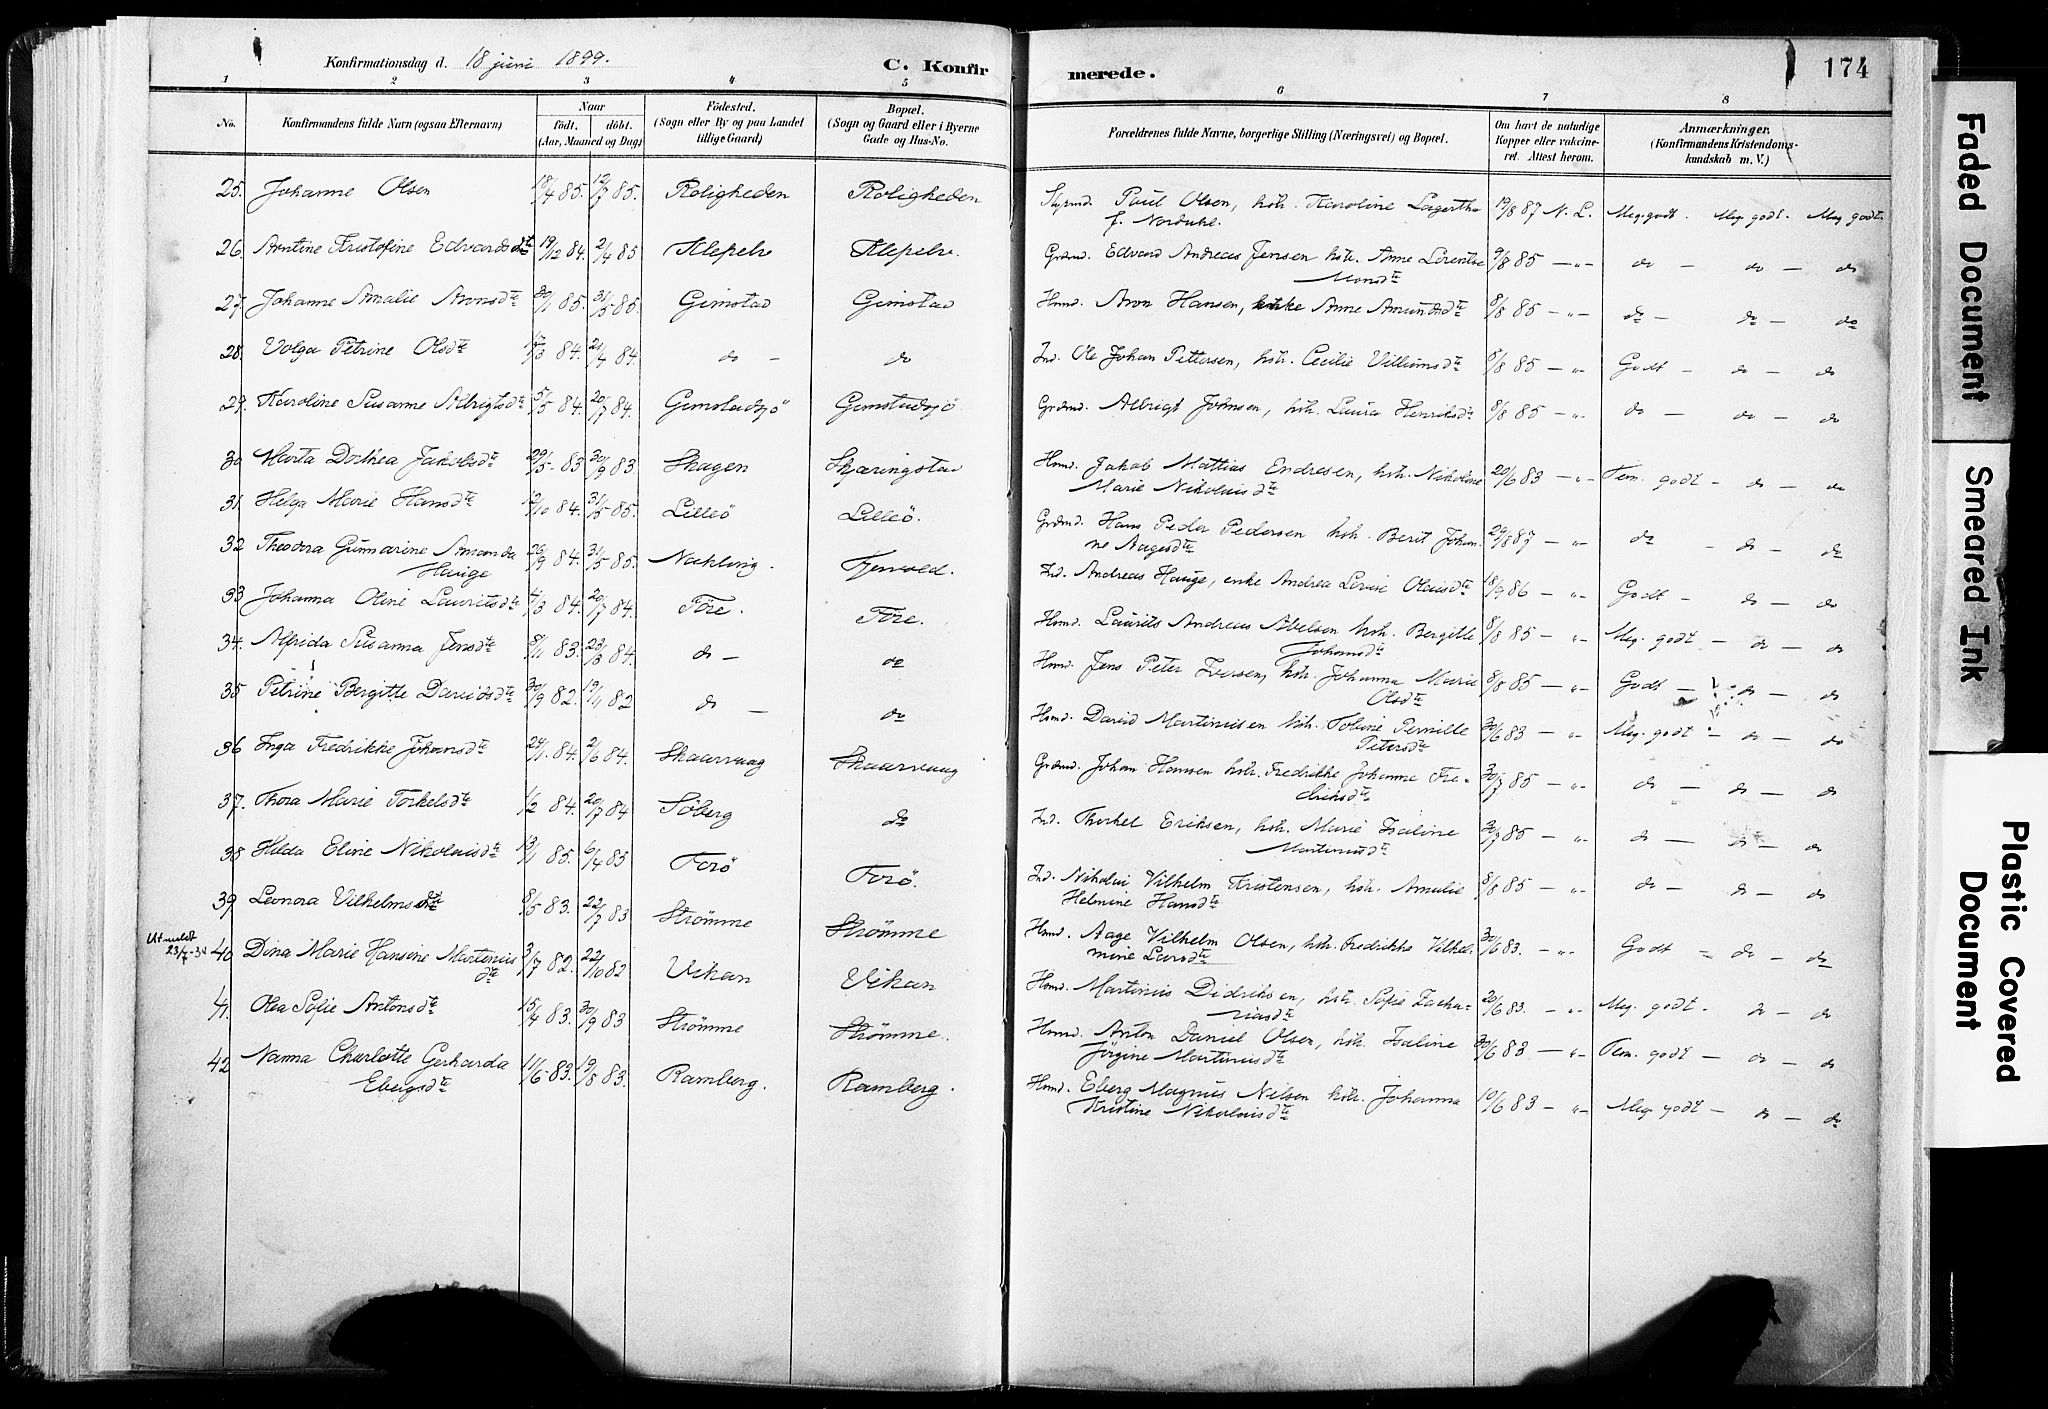 Konfirmationsdag d. 18 juni 1899.
C. Konfirmerede.
174
1 2 3 4 5 6 7 8
No.
Konfirmandens fulde Navn (ogsaa Efternavn)
Naar
født. døbt.
(Aar, Maaned og Dag)
Fødested.
(Sogn eller By og paa Landet
tillige Gaard)
Bopæl.
(Sogn og Gaard eller i Byerne
Gade og Hus-No.
Forældrenes fulde Navne, borgerlige Stilling (Næringsvei) og Bopæl.
Om havt de naturlige
Kopper eller vakcine-
ret. Attest herom.
Anmærkninger.
(Konfirmandens Kristendoms-
kundskab m. V.)
25. Johanne Olsen 18/4 85. 12/7 85. Roligheden Roligheden Styrmd. Paul Olsen, hstr. Karoline Lagertha
f. Nordahl. 19/8 87 N. L. Meg. godt. Meg. godt. Meg. godt.
26. Arntine Kristofine Edvardsdtr 19/12 84. 2/4 85 Klepelv Klepelv. Grdmd. Edvard Andreas Jensen hstr. Anne Lorentse
Monsdtr 9/8 85 — " do — do — do
27. Johanne Amalie Aronsdtr 30/1 85. 31/5 85. Gimstad Gimstad Hmd. Aron Hansen, enke Anne Amundsdtr 8/8 85 — " do — do — do
28. Volga Petrine Olsdtr /3 84. 21/4 84. do — do Ind. Ole Johan Pettersen, hstr. Cecilie Villumsdtr 8/8 85 — " Godt — do — do
29. Karoline Susanne Albrigtsdtr 5/5 84. 20/7 84. Gimstadsjö Gimstadsjö Grdmd. Albrigt Johnsen, hstr. Laura Henriksdtr 8/8 85 — " do — do — do
30 Marta Dorthea Jakobsdtr 29/5 83 30/9 83. Skagen Skæringstad Hmd. Jakob Mattias Endresen, hstr. Nikoline
Marie Nikolaisdtr 20/6 83 — " Tem. godt — do — do
31. Helga Marie Hansdtr 12/10 84. 31/5 85. Lilleö Lilleö. Grdmd. Hans Peder Pedersen hstr. Berit Johan-
ne Aagesdtr 29/8 87 — " do — do — do
32 Theodora Gunnarine Amanda
Hauge 26/9 84. 31/5 85. Fjærvold. Ind. Andreas Hauge, enke Andrea Lovise Olausdtr 18/9 86 — " Godt — do — do
33 Johanna Oline Lauritsdtr 4/3 84. 20/7 84. Före. Före. Hmd. Laurits Andreas Abelsen hstr. Bergitte
Johansdtr 8/8 85 — " Meg. godt — do — do
34. Alfrida Susanna Jensdtr 8/11 83. 23/3 84. do — do Hmd. Jens Peter Iversen, hstr. Johanna Marie
Olsdtr 8/8 85 — " Godt — do — do
35 Petrine Bergitte Davidsdtr 30/9 82. 19/11 82 do — do Hmd. David Martinusen hstr. Tobine Pernille
Petersdtr 30/6 83 — " Meg. godt — do — do
36 Inga Fredrikke Johansdtr 24/1 84. 2/6 84. Skaarvaag Skaarvaag Grdmd. Johan Hansen hstr. Fredrikke Johanne Fre-
driksdtr 30/7 85 — " do — do — do
37. Thora Marie Torkelsdtr 1/2 84. 20/7 84 Söberg do Ind. Thorkel Eriksen, hstr. Marie Isaline
Martinusdtr 30/7 85 — " do — do — do
38 Hilda Eline Nikolaisdtr 13/1 85. 6/4 85 Forö Forö. Ind. Nikolai Vilhelm Kristensen, hstr. Amalie
Helmine Hansdtr 8/8 85 — " do — do — do
39 Leonora Vilhelmsdtr 8/5 83. 22/7 83 Strömme Strömme Hmd. Aage Vilhelm Olsen, hstr. Fredrikke Vilhel-
mine Larsdtr 30/6 83. — " Godt — do — do
Utmeldt
23/7-3
40 Dina Marie Hansine Martinus
dtr 3/7 82. 22/10 82 Vikan Vikan Hmd. Martinus Didriksen, hstr. Sofie Zacha-
riasdtr 20/6 83. — " Meg. godt. do — do
41. Olea Sofie Antonsdtr 15/4 83. 30/9 83 Strömme Strömme. Hmd. Anton Daniel Olsen, hstr. Isaline
Jörgine Martinusdtr 30/6 83 — " Tem. godt — do — do
42 Nanna Charlotte Gerharda
Ebergsdtr 11/6 83. 19/8 83. Ramberg. Ramberg. Hmd. Eberg Magnus Nilsen hstr. Johanna
Kristine Nikolaisdtr 10/6 83 — " Meg godt — do — do
Faded Document
Smeared Ink
Plastic Covered
Document